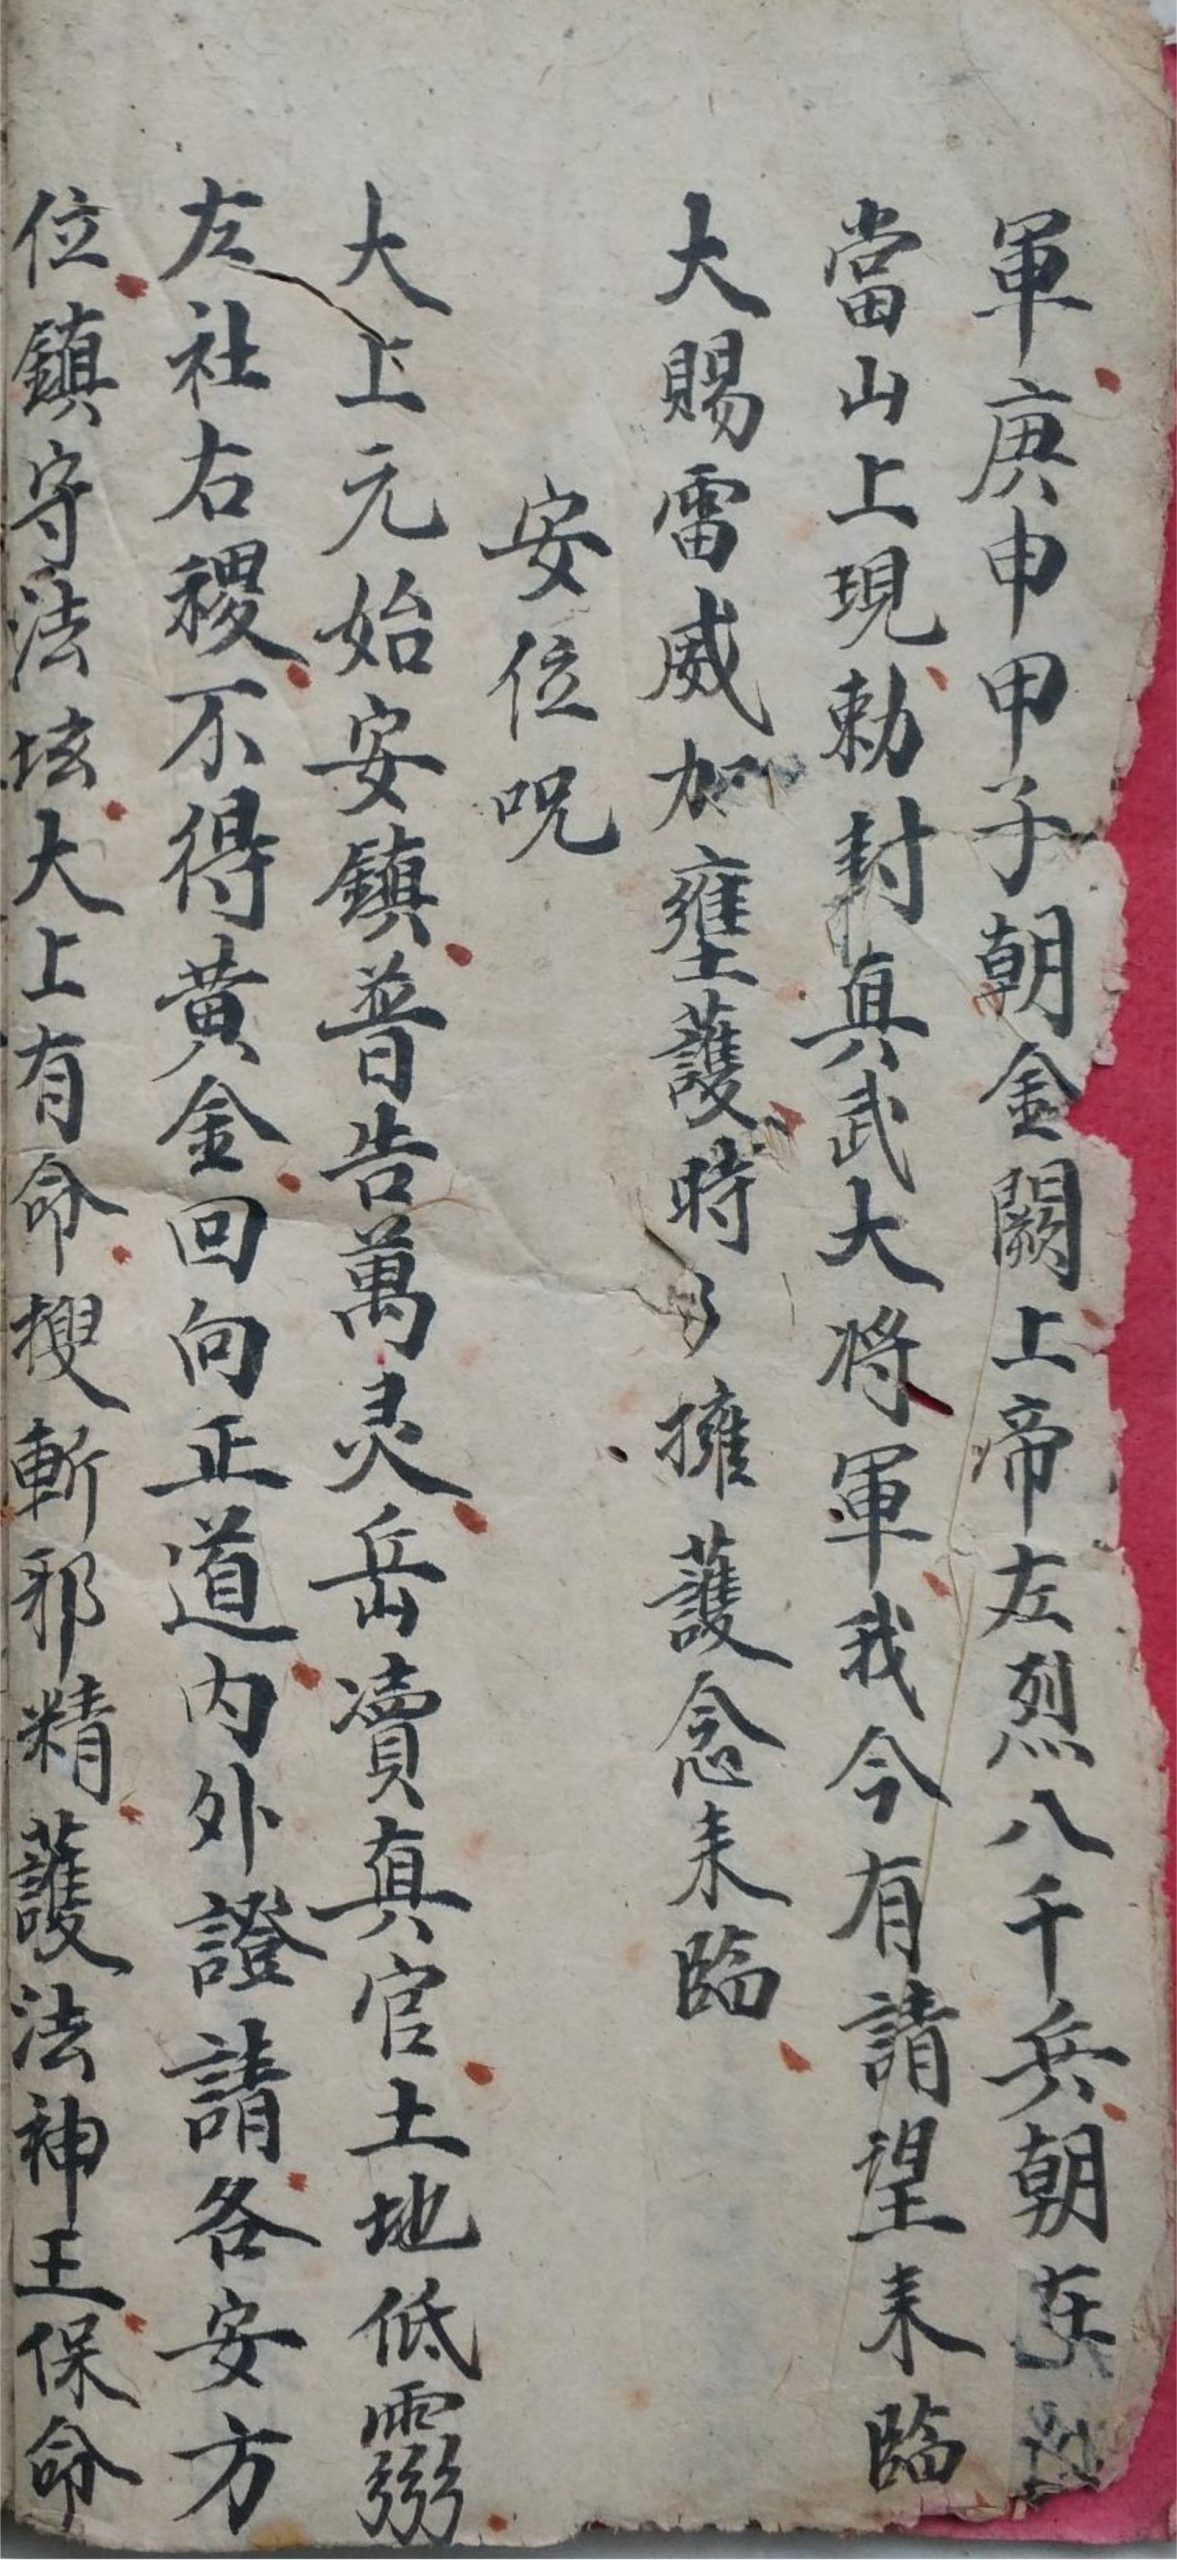 軍庚申甲子朝金闕上帝左烈八千兵朝在
當山上現勅封真武大将軍我今有請望来臨
大賜雷威加壅護時々擁護念来臨
安位咒
大上元始安鎮普告萬灵岳凟真官土地低
左社右稷不得黄金回向正道内外證請各安方
位鎮守法坛大上有命搜斬邪精護法神王保命